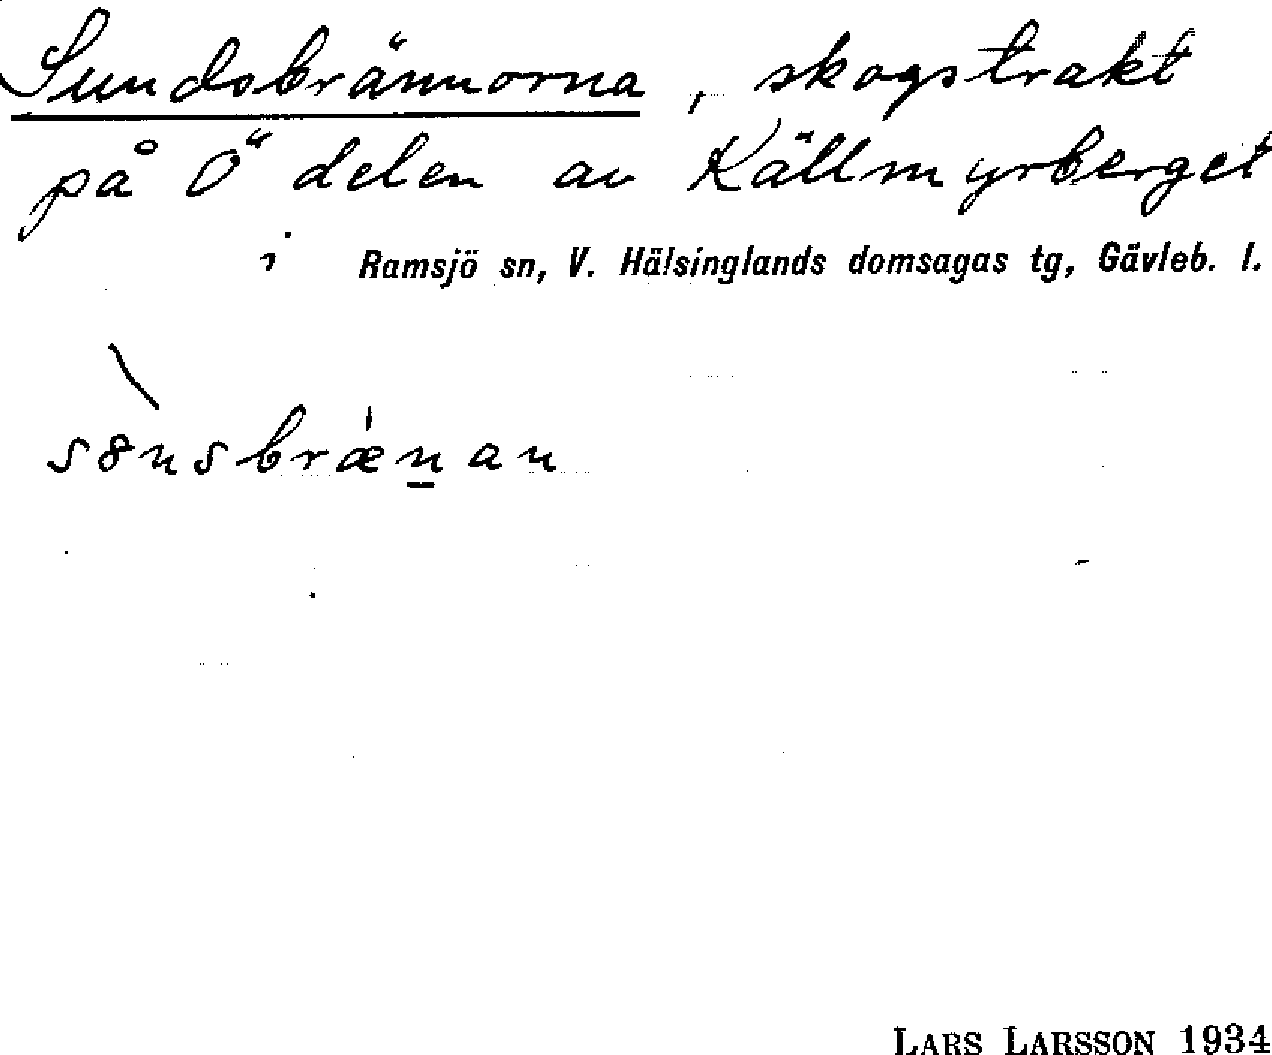 Sundsbrännorna, skogstrakt
på Ö delen av Källmyrberget
i Ramsjö sn, V. Hälsinglands domsagas tg, Gävleb. l.
s8nsbrænan
LARS LARSSON 1934